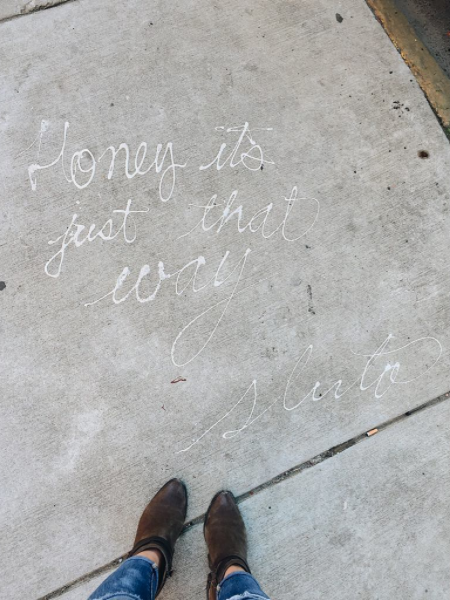 Honey it's
just that
way
sluto